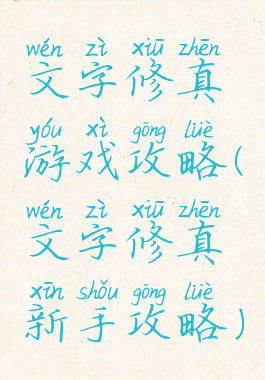 wén zì xiū zhēn
文字修真
yóu xì gōng lüè
游戏攻略(
wén zì xiū zhēn
文字修真
xīn shǒu gōng lüè
新手攻略)